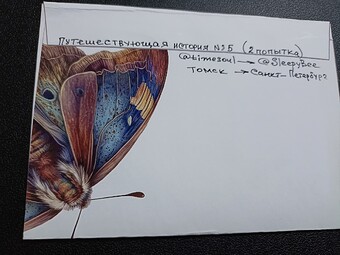 Путешествующая история №5 (2 попытка)
@timesoul → @SleepyBee
Томск → Санкт-Петербург